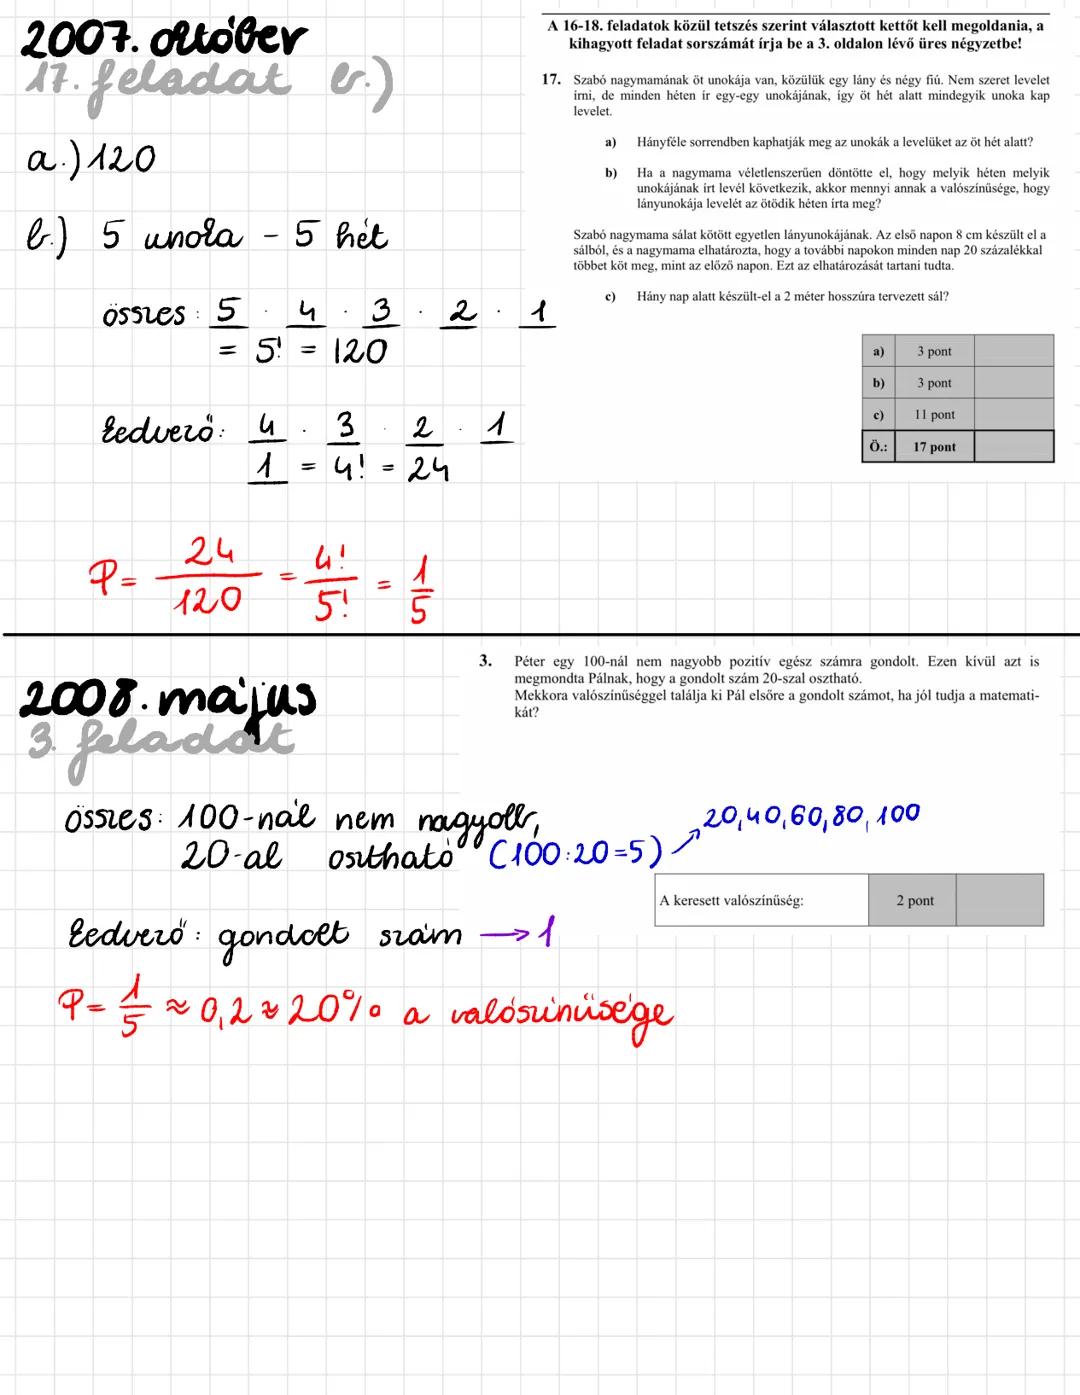 2007. október
17. feladat b.)
a.) 120
b.) 5 unoka - 5 hét
összes: 5 · 4 · 3 · 2 · 1
= 5! = 120
kedvező: 4 · 3 · 2 · 1
1 = 4! = 24
P = 24/120 = 4!/5! = 1/5
A 16-18. feladatok közül tetszés szerint választott kettőt kell megoldania, a
kihagyott feladat sorszámát írja be a 3. oldalon lévő üres négyzetbe!
17. Szabó nagymamának öt unokája van, közülük egy lány és négy fiú. Nem szeret levelet
írni, de minden héten ír egy-egy unokájának, így öt hét alatt mindegyik unoka kap
levelet.
a) Hányféle sorrendben kaphatják meg az unokák a levelüket az öt hét alatt?
b) Ha a nagymama véletlenszerűen döntötte el, hogy melyik héten melyik
unokájának írt levél következik, akkor mennyi annak a valószínűsége, hogy
lányunokája levelét az ötödik héten írta meg?
Szabó nagymama sálat kötött egyetlen lányunokájának. Az első napon 8 cm készült el a
sálból, és a nagymama elhatározta, hogy a további napokon minden nap 20 százalékkal
többet köt meg, mint az előző napon. Ezt az elhatározását tartani tudta.
c) Hány nap alatt készült-el a 2 méter hosszúra tervezett sál?
a) 3 pont
b) 3 pont
c) 11 pont
Ö.: 17 pont
2008. május
3. feladat
3. Péter egy 100-nál nem nagyobb pozitív egész számra gondolt. Ezen kívül azt is
megmondta Pálnak, hogy a gondolt szám 20-szal osztható.
Mekkora valószínűséggel találja ki Pál elsőre a gondolt számot, ha jól tudja a matemati-
kát?
összes: 100-nál nem nagyobb,
20-al osztható (100:20=5) 20, 40, 60, 80, 100
A keresett valószínűség: 2 pont
kedvező: gondolt szám → 1
P = 1/5 ≈ 0,2 ≈ 20% a valószinüsége